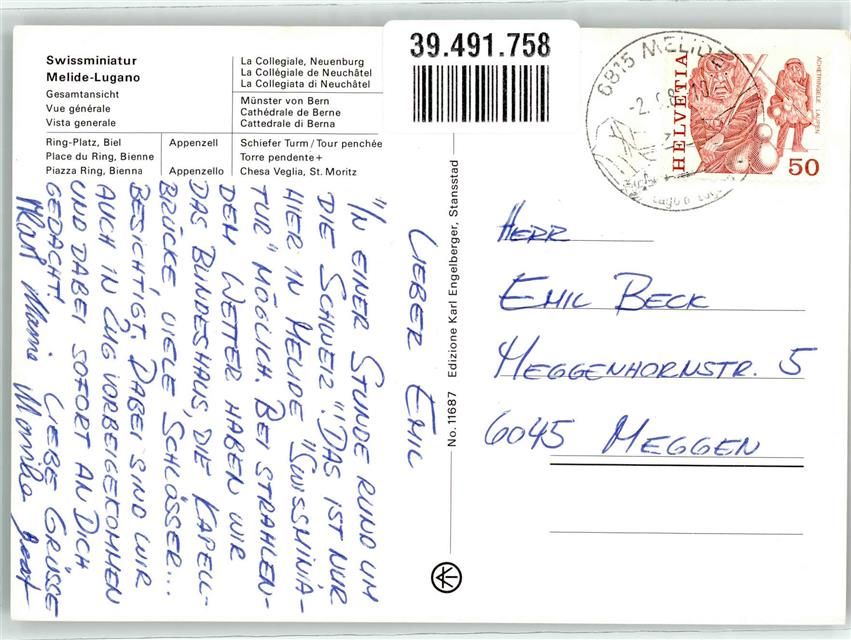 Swissminiatur
Melide-Lugano
Gesamtansicht
Vue générale
Vista generale
Ring-Platz, Biel
Place du Ring, Bienne
Piazza Ring, Bienna
Appenzell
Appenzello
La Collegiale, Neuenburg
La Collégiale de Neuchâtel
La Collegiata di Neuchâtel
Münster von Bern
Cathédrale de Berne
Cattedrale di Berna
Schiefer Turm / Tour penchée
Torre pendente +
Chesa Veglia, St. Moritz
39.491.758
6815 MELIDE
HELVETIA
ACHETRINGELE LAUPEN
50
No. 11687 Edizione Karl Engelberger, Stansstad
LIEBER EMIL
"IN EINER STUNDE RUND UM
DIE SCHWEIZ"! DAS IST NUR
HIER IN MELIDE "SWISSMINIA-
TUR" MÖGLICH. BEI STRAHLEN-
DEM WETTER HABEN WIR
DAS BUNDESHAUS, DIE KAPELL-
BRÜCKE, VIELE SCHLÖSSER...
BESICHTIGT. DABEI SIND WIR
AUCH IN ZUG VORBEIGEKOMMEN
UND DABEI SOFORT AN DICH
GEDACHT. LIEBE GRÜSSE
Monika
HERR
EMIL BECK
MEGGENHORNSTR. 5
6045 MEGGEN